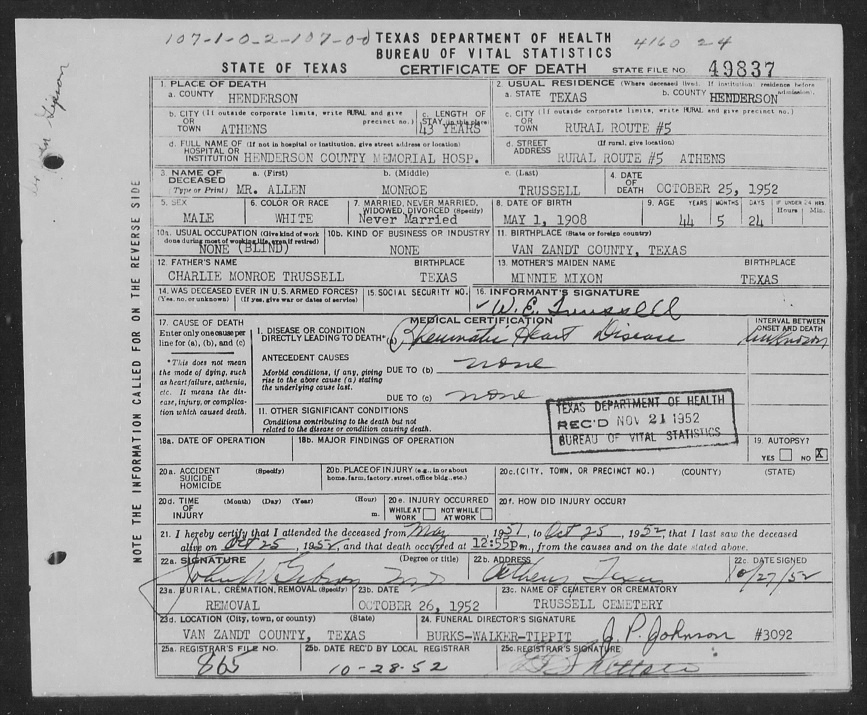 107-1-0-2-107-00
TEXAS DEPARTMENT OF HEALTH
4160 24
BUREAU OF VITAL STATISTICS
STATE OF TEXAS CERTIFICATE OF DEATH STATE FILE NO. 49837
1. PLACE OF DEATH
a. COUNTY HENDERSON
2. USUAL RESIDENCE (Where deceased lived. If institution, residence before admission).
a. STATE TEXAS b. COUNTY HENDERSON
b. CITY (If outside corporate limits, write RURAL and give precinct no.) OR TOWN ATHENS
c. LENGTH OF STAY (in this place) 43 YEARS
c. CITY (If outside corporate limits, write RURAL and give precinct no.) OR TOWN RURAL ROUTE #5
d. FULL NAME OF (If not in hospital or institution, give street address or location) HOSPITAL OR INSTITUTION HENDERSON COUNTY MEMORIAL HOSP.
d. STREET ADDRESS (If rural, give location) RURAL ROUTE #5 ATHENS
3. NAME OF DECEASED (Type or Print) a. (First) MR. ALLEN b. (Middle) MONROE c. (Last) TRUSSELL
4. DATE OF DEATH OCTOBER 25, 1952
5. SEX MALE
6. COLOR OR RACE WHITE
7. MARRIED, NEVER MARRIED, WIDOWED, DIVORCED (Specify) Never Married
8. DATE OF BIRTH MAY 1, 1908
9. AGE YEARS 44 MONTHS 5 DAYS 24 IF UNDER 24 HRS. Hours Min.
10a. USUAL OCCUPATION (Give kind of work done during most of working life, even if retired) NONE (BLIND)
10b. KIND OF BUSINESS OR INDUSTRY NONE
11. BIRTHPLACE (State or foreign country) VAN ZANDT COUNTY, TEXAS
12. FATHER'S NAME CHARLIE MONROE TRUSSELL BIRTHPLACE TEXAS
13. MOTHER'S MAIDEN NAME MINNIE MIXON BIRTHPLACE TEXAS
14. WAS DECEASED EVER IN U.S. ARMED FORCES? (Yes, no, or unknown) (If yes, give war or dates of service)
15. SOCIAL SECURITY NO.
16. INFORMANT'S SIGNATURE W. E. Trussell
17. CAUSE OF DEATH
Enter only one cause per line for (a), (b), and (c)
*This does not mean the mode of dying, such as heart failure, asthenia, etc. It means the disease, injury, or complication which caused death.
MEDICAL CERTIFICATION
I. DISEASE OR CONDITION DIRECTLY LEADING TO DEATH* (a) Rheumatic Heart Disease
INTERVAL BETWEEN ONSET AND DEATH Unknown
ANTECEDENT CAUSES
Morbid conditions, if any, giving rise to the above cause (a) stating the underlying cause last.
DUE TO (b) none
DUE TO (c) none
II. OTHER SIGNIFICANT CONDITIONS
Conditions contributing to the death but not related to the disease or condition causing death.
TEXAS DEPARTMENT OF HEALTH
REC'D NOV 21 1952
BUREAU OF VITAL STATISTICS
18a. DATE OF OPERATION
18b. MAJOR FINDINGS OF OPERATION
19. AUTOPSY? YES NO X
20a. ACCIDENT SUICIDE HOMICIDE (Specify)
20b. PLACE OF INJURY (e.g., in or about home, farm, factory, street, office bldg., etc.)
20c. (CITY, TOWN, OR PRECINCT NO.) (COUNTY) (STATE)
20d. TIME OF INJURY (Month) (Day) (Year) (Hour) m.
20e. INJURY OCCURRED WHILE AT WORK NOT WHILE AT WORK
20f. HOW DID INJURY OCCUR?
21. I hereby certify that I attended the deceased from May, 1951, to Oct 25, 1952, that I last saw the deceased
alive on Oct 25, 1952, and that death occurred at 12:55p m., from the causes and on the date stated above.
22a. SIGNATURE (Degree or title) M.D.
22b. ADDRESS Athens Texas
22c. DATE SIGNED 10/27/52
23a. BURIAL, CREMATION, REMOVAL (Specify) REMOVAL
23b. DATE OCTOBER 26, 1952
23c. NAME OF CEMETERY OR CREMATORY TRUSSELL CEMETERY
23d. LOCATION (City, town, or county) (State) VAN ZANDT COUNTY, TEXAS
24. FUNERAL DIRECTOR'S SIGNATURE BURKS-WALKER-TIPPIT J. P. Johnson #3092
25a. REGISTRAR'S FILE NO. 865
25b. DATE REC'D BY LOCAL REGISTRAR 10-28-52
25c. REGISTRAR'S SIGNATURE
NOTE THE INFORMATION CALLED FOR ON THE REVERSE SIDE